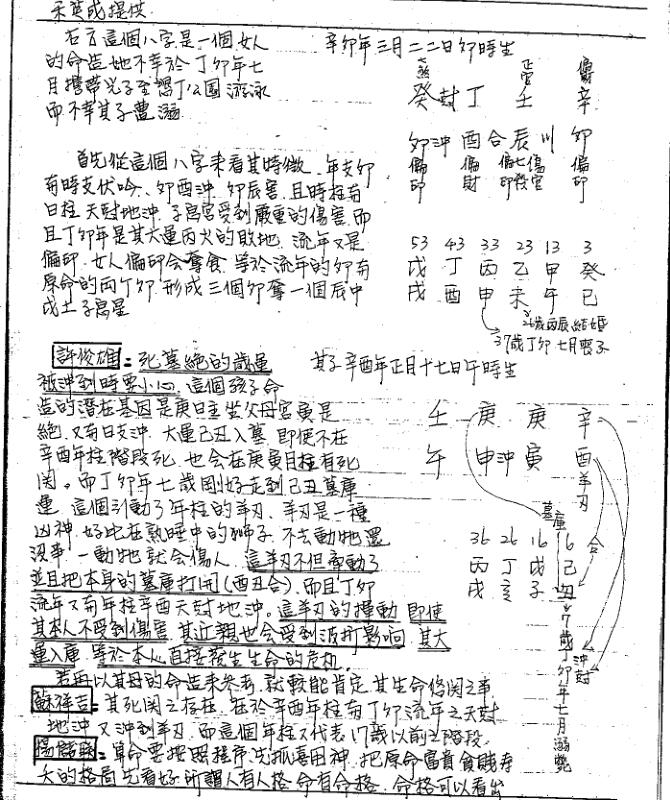 宋英成提供
右方這個八字是一個女人
的命造她不幸於丁卯年七
月攜帶兒子至墾丁公園游泳
而不幸其子遭溺
首先從這個八字來看其特徵、年支卯
有時支伏吟、卯酉沖、卯辰害、且時柱有
日柱天尅地沖、子息宮受到嚴重的傷害、而
且丁卯年是其大運丙火的敗地、流年又是
偏印、女人偏印會奪食、等於流年的卯有
原命的兩丁卯、形成三個卯奪一個辰中
戊土子息星
辛卯年三月二二日卯時生
七煞 正官 偏財
癸尅丁 壬 辛
卯沖酉合辰川卯
偏印 偏財 偏印 七殺 傷官 偏印
53 43 33 23 13 3
戊 丁 丙 乙 甲 癸
戌 酉 申 未 午 巳
26歲丙辰結婚
37歲丁卯七月喪子
許俊雄:死墓絕的歲運
被沖到時要小心、這個孩子命
造的潛在基因是庚日主坐父母宮寅是
絕、又有日支沖、大運己丑入墓、即使不在
辛酉年柱階段死、也會在庚寅月柱有死
關。而丁卯年七歲剛好走到己丑墓庫
運、這個引動了年柱的羊刃、羊刃是一種
凶神、好比在熟睡中的獅子、不去動牠還
沒事、一動牠就會傷人、這羊刃不但牽動了
並且把本身的墓庫打開(酉丑合)、而且丁卯
流年又有年柱辛酉天尅地沖。這羊刃的攪動即使
其本人不受到傷害、其近親也會受到波折影响、其大
運入庫、等於本心直接發生生命的危机。
若再以其母的命造來参考、就較能肯定其生命攸関之事
其子辛酉年正月十七日午時生
壬 庚 庚 辛
午 申沖寅 酉羊刃
墓庫
36 26 16 6
丙 丁 戊 己
戌 亥 子 丑
合
沖尅
7歲丁卯年七月溺斃
蘇祥吉:其死関之存在、在於辛酉年柱有丁卯流年之天尅
地沖、又沖到羊刃、而這個年柱又代表17歲以前之階段。
楊儲驗:算命要按照程序、先抓喜用神、把原命富貴貧賤壽
夭的格局先看好、所謂人有人格、命有命格、命格可以看出